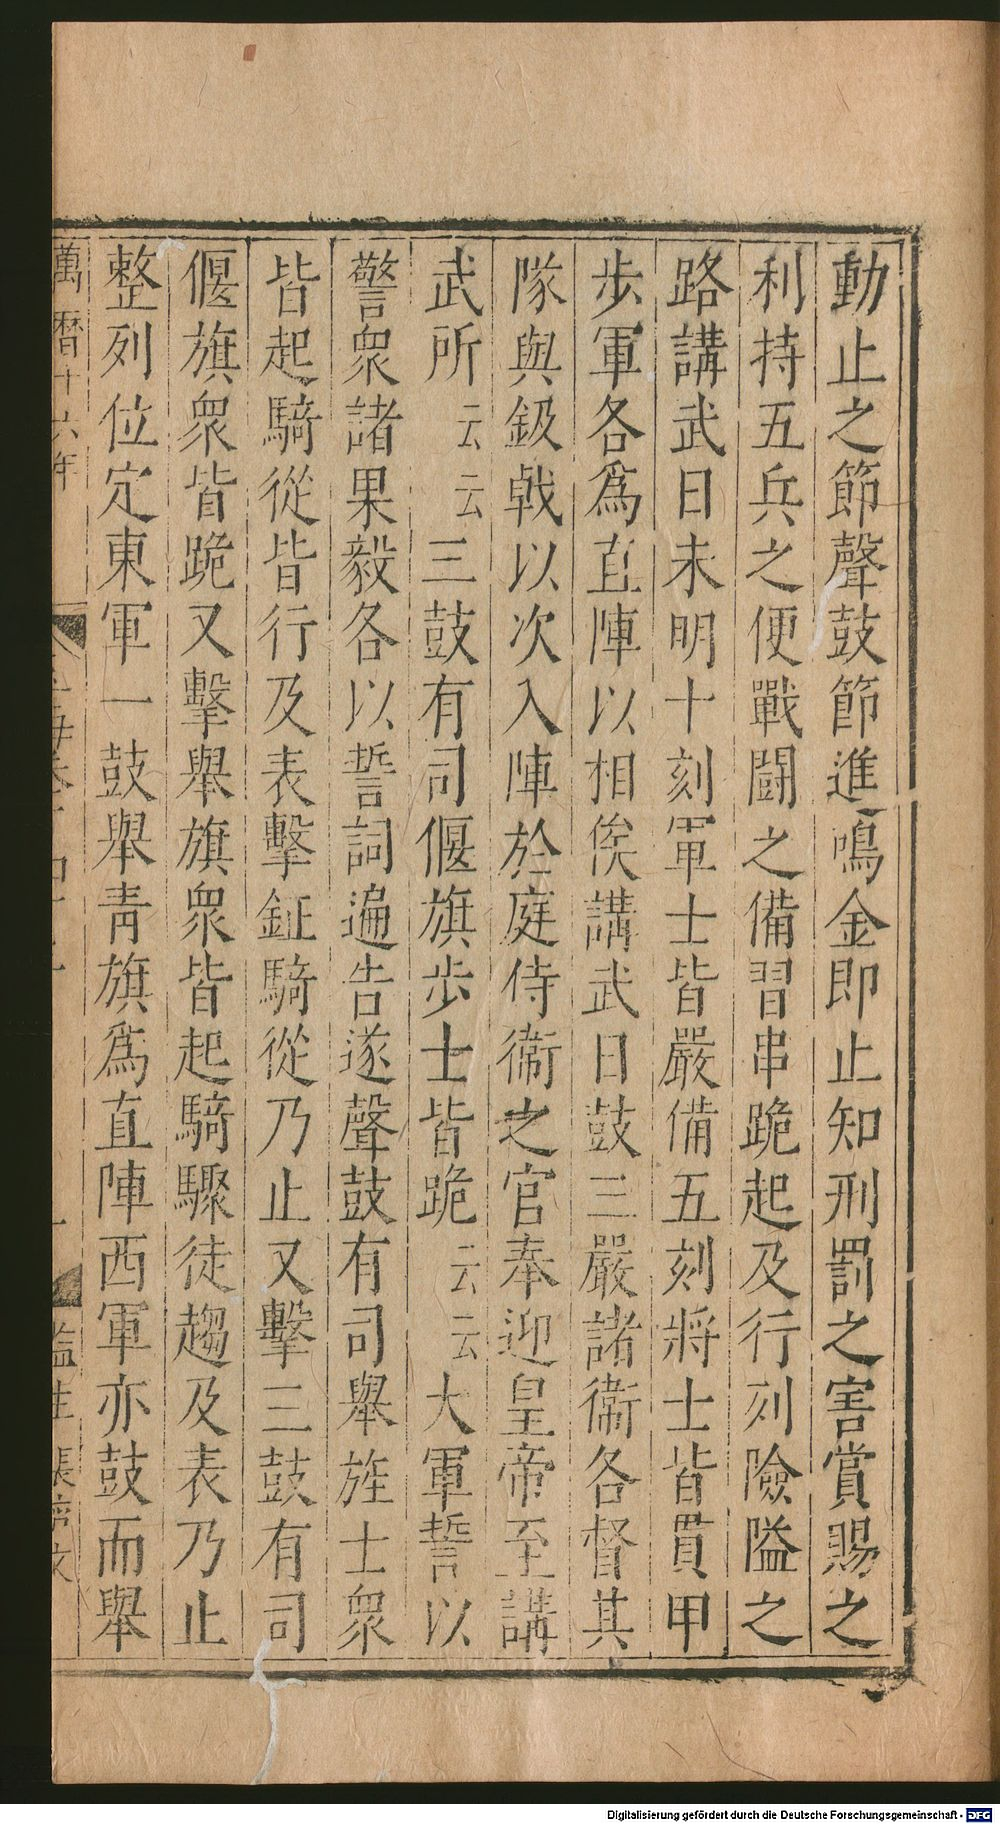 動止之節聲鼓節進鳴金即止知刑罰之害賞賜之
利持五兵之便戰鬪之備習串跪起及行列險隘之
路講武日未明十刻軍士皆嚴備五刻將士皆貫甲
步軍各爲直陣以相俟講武日鼓三嚴諸衞各督其
隊與鈒戟以次入陣於庭侍衞之官奉迎皇帝至講
武所云云三鼓有司偃旗步士皆跪云云大軍誓以
警衆諸果毅各以誓詞遍告遂聲鼓有司舉旌士衆
皆起騎從皆行及表擊鉦騎從乃止又擊三鼓有司
偃旗衆皆跪又擊舉旗衆皆起騎驟徒趨及表乃止
整列位定東軍一鼓舉青旗爲直陣西軍亦鼓而舉
萬曆十六年
監生張
Digitalisierung gefördert durch die Deutsche Forschungsgemeinschaft - DFG